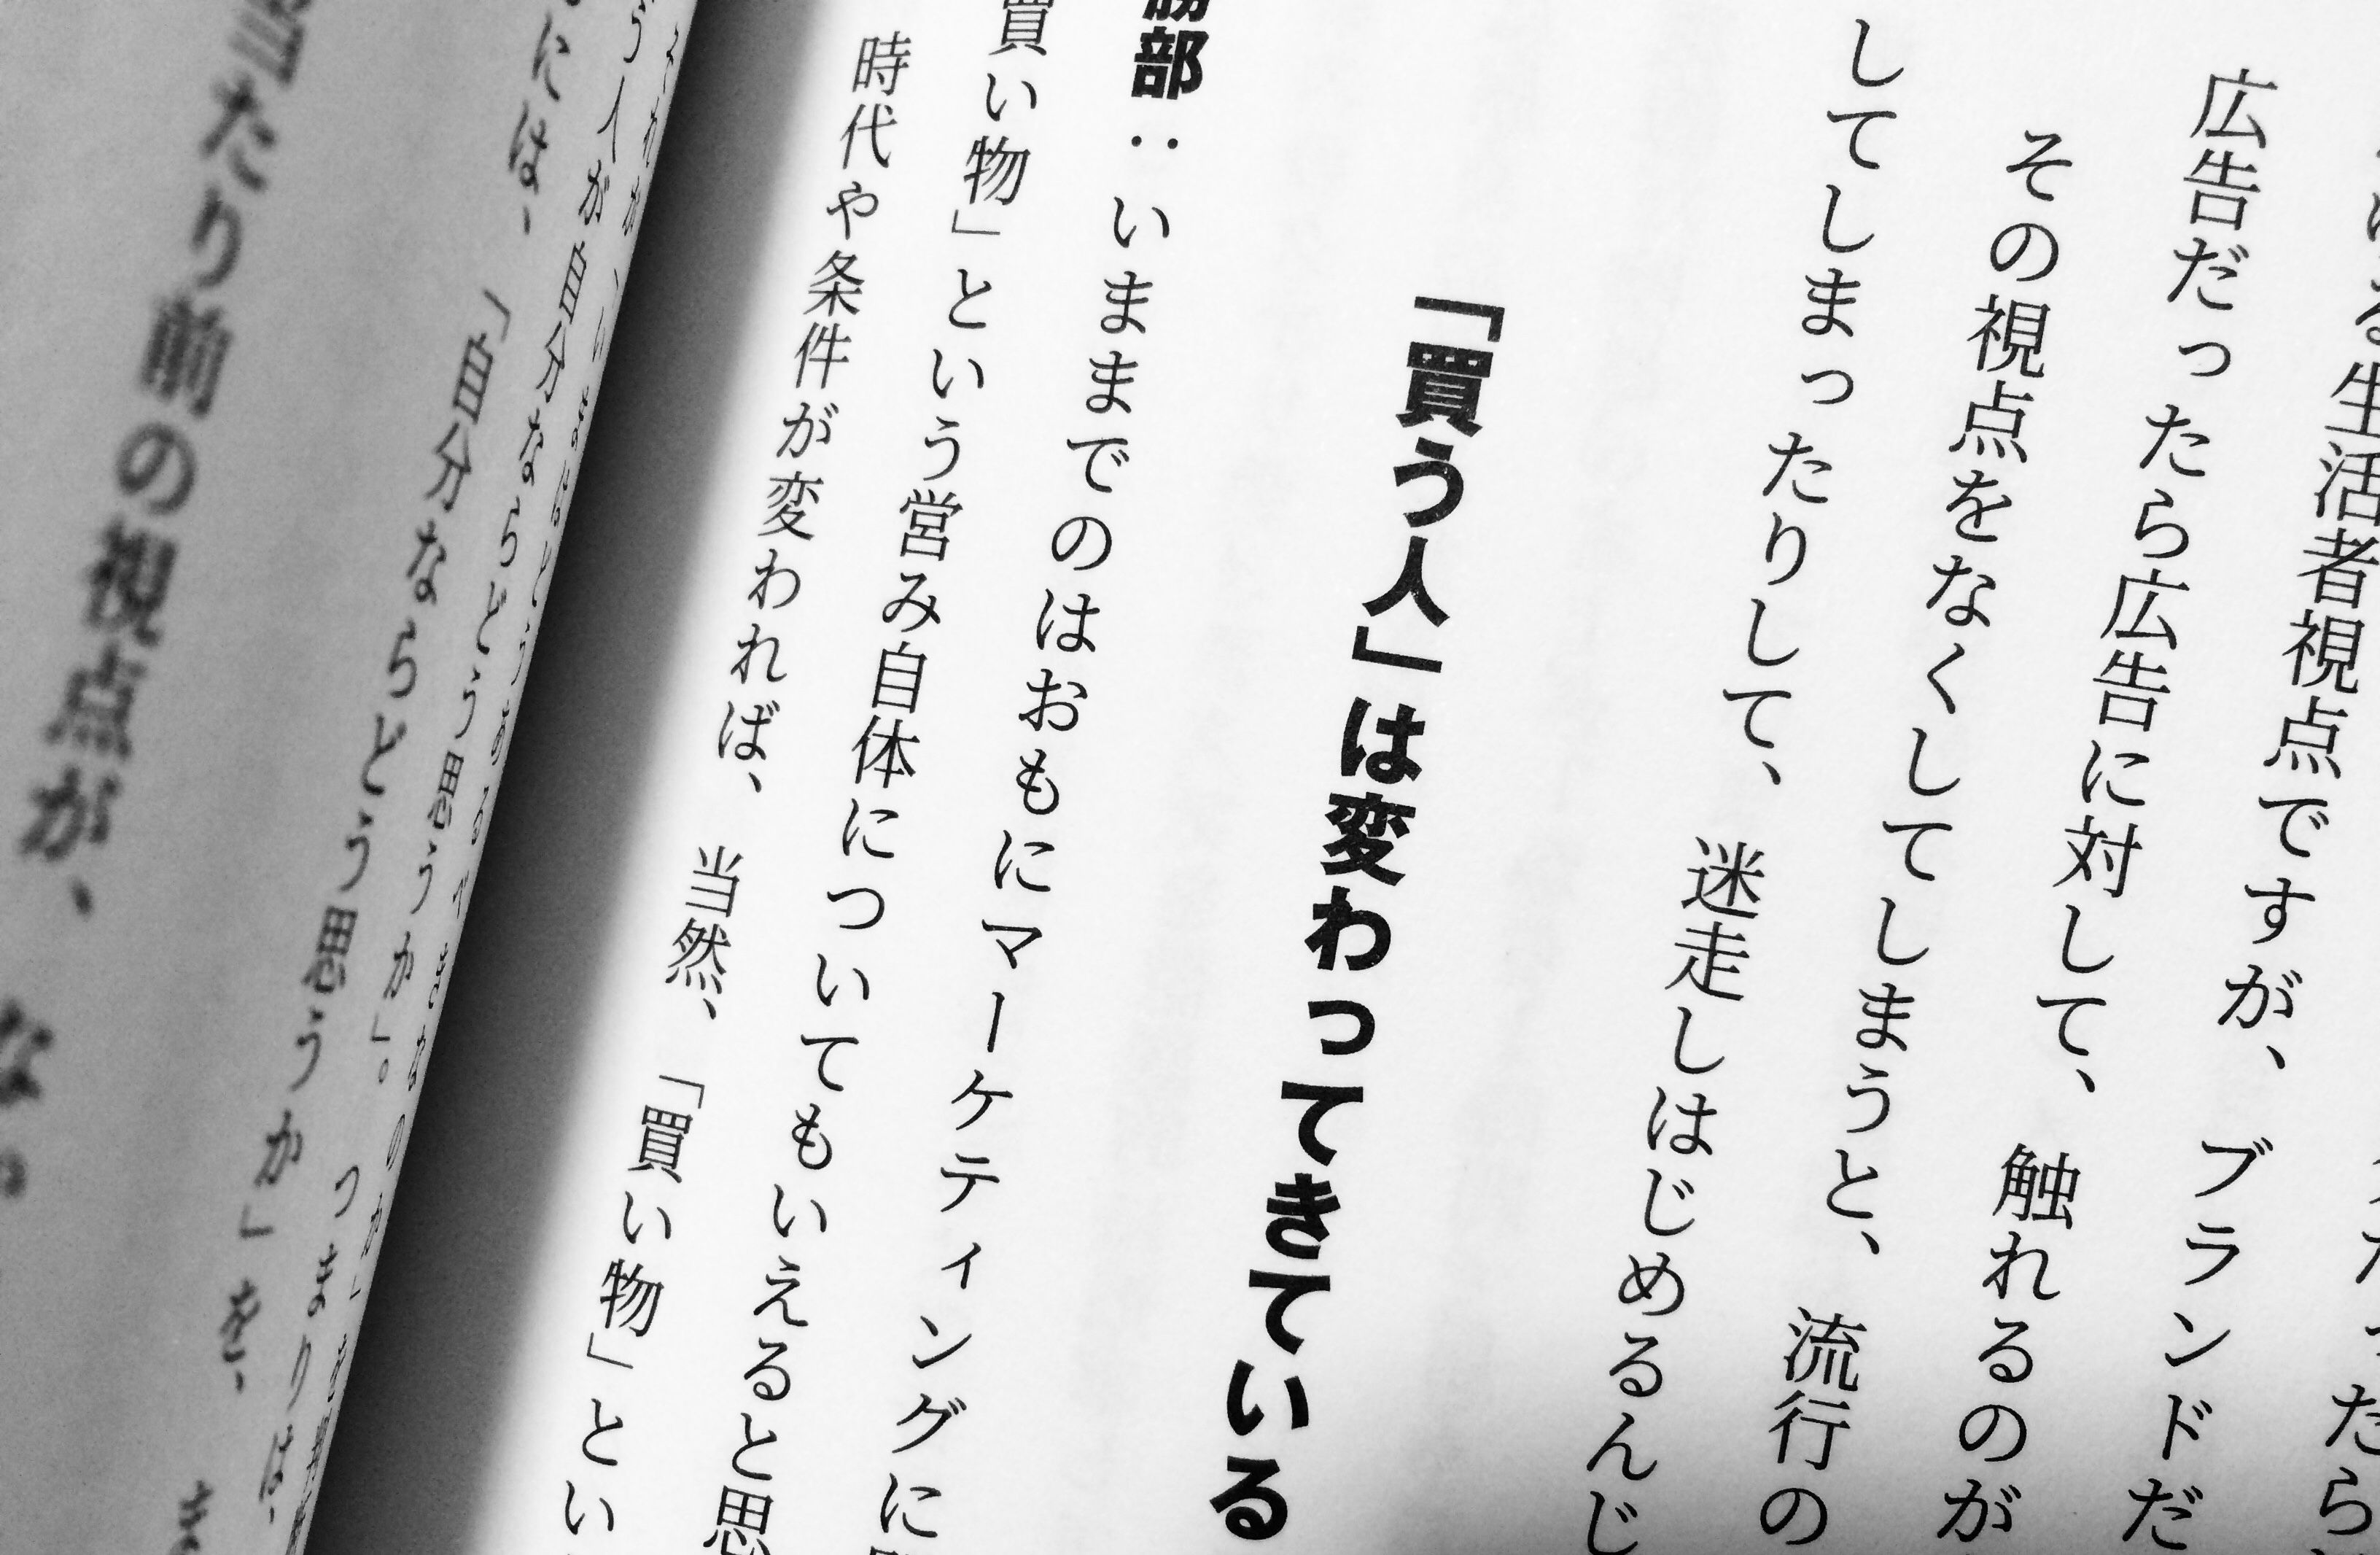 る生活者視点ですが、ブランドだ
広告だったら広告に対して、触れるのが
その視点をなくしてしまうと、流行の
してしまったりして、迷走しはじめるんじ
「買う人」は変わってきている
部：いままでのはおもにマーケティングに
買い物」という営み自体についてもいえると思
時代や条件が変われば、当然、「買い物」とい
う人が自分ならどう思うか」。つまりは、
には、「自分ならどう思うか」を、
当たり前の視点が、